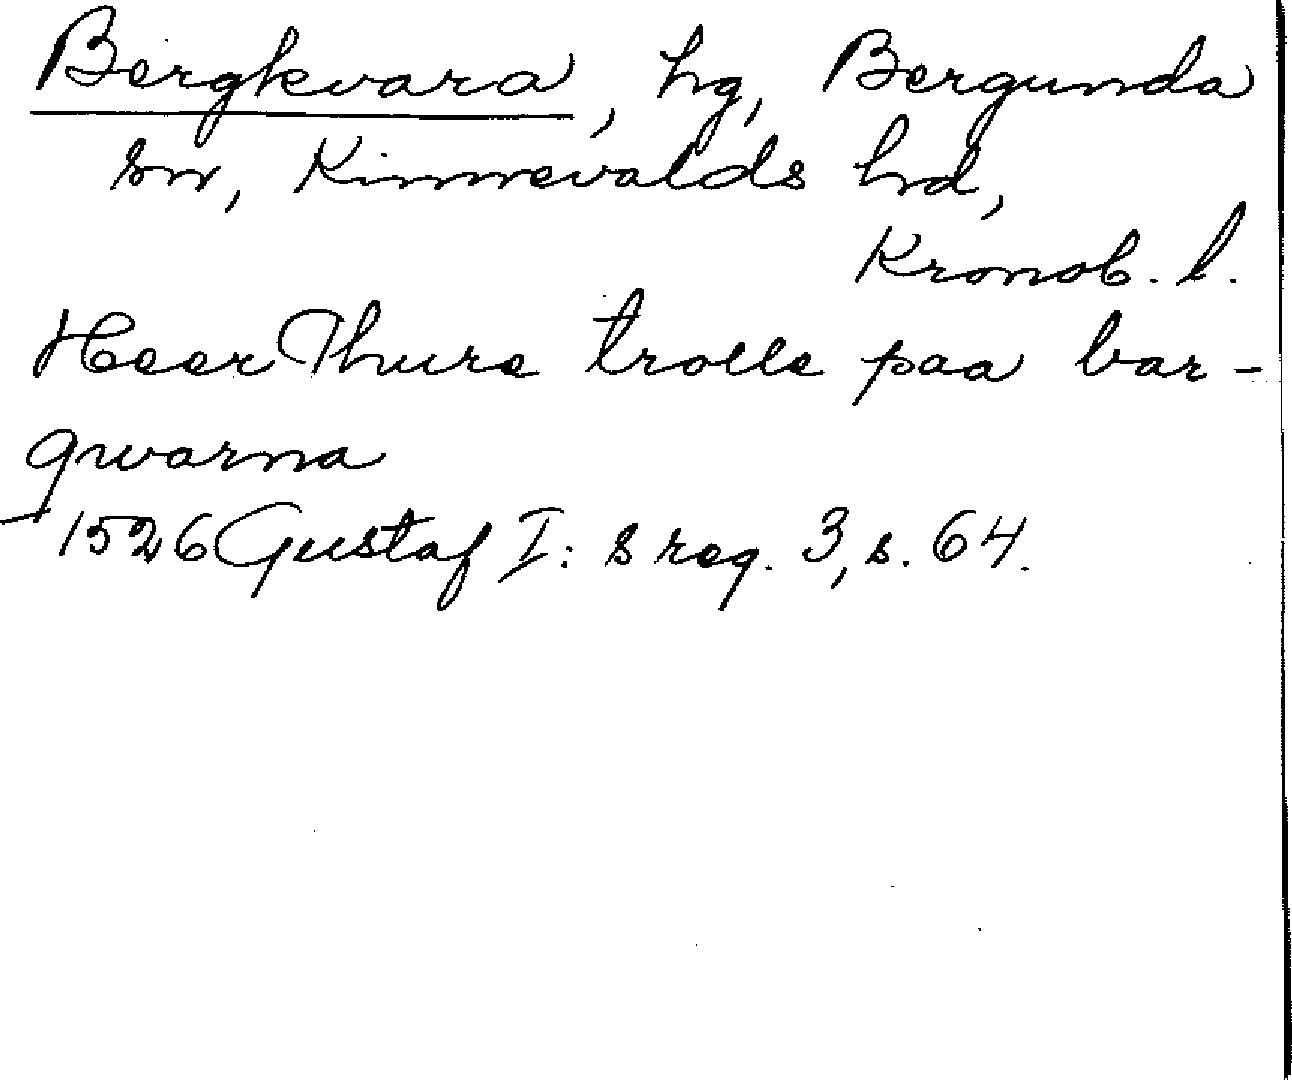 Bergkvara, hg, Bergunda
sn, Kinnevalds hd,
Kronob. l.
Heer Thure trolle paa bar-
qwarna
1526 Gustaf I:s reg. 3, s. 64.